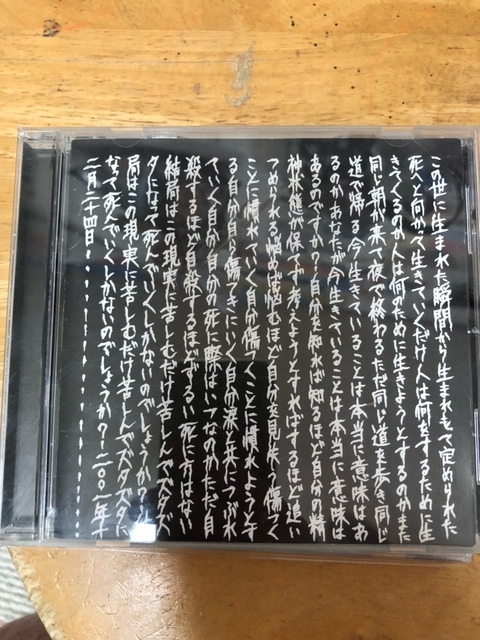 この世に生まれた瞬間から生まれもって定められた
死へと向かって生きていくだけ人は何をするために生
きてくるのか人は何のために生きようとするのかまた
同じ朝が来て夜で終わるただ同じ道を歩き同じ
道で帰る今生きていることは本当に意味はあ
るのかあなたが今生きていることは本当に意味は
あるのですか?自分を知れば知るほど自分の精
神状態が保てず考えようとすればするほど追い
つめられる悩めば悩むほど自分を見失って傷つく
ことに慣れていく自分傷つくことに慣れようとす
る自分自ら傷つきにいく自分涙と共につぶれ
ていく自分自分の死に際はいつなのかただ自
殺するほど自殺するほどずるい死に方はない
結局はこの現実に苦しむだけ苦しんでズタズ
タになって死んでいくしかないのでしょうか?結
局はこの現実に苦しむだけ苦しんでズタズタに
なって死んでいくしかないのでしょうか?二〇〇一年十
二月二十四日